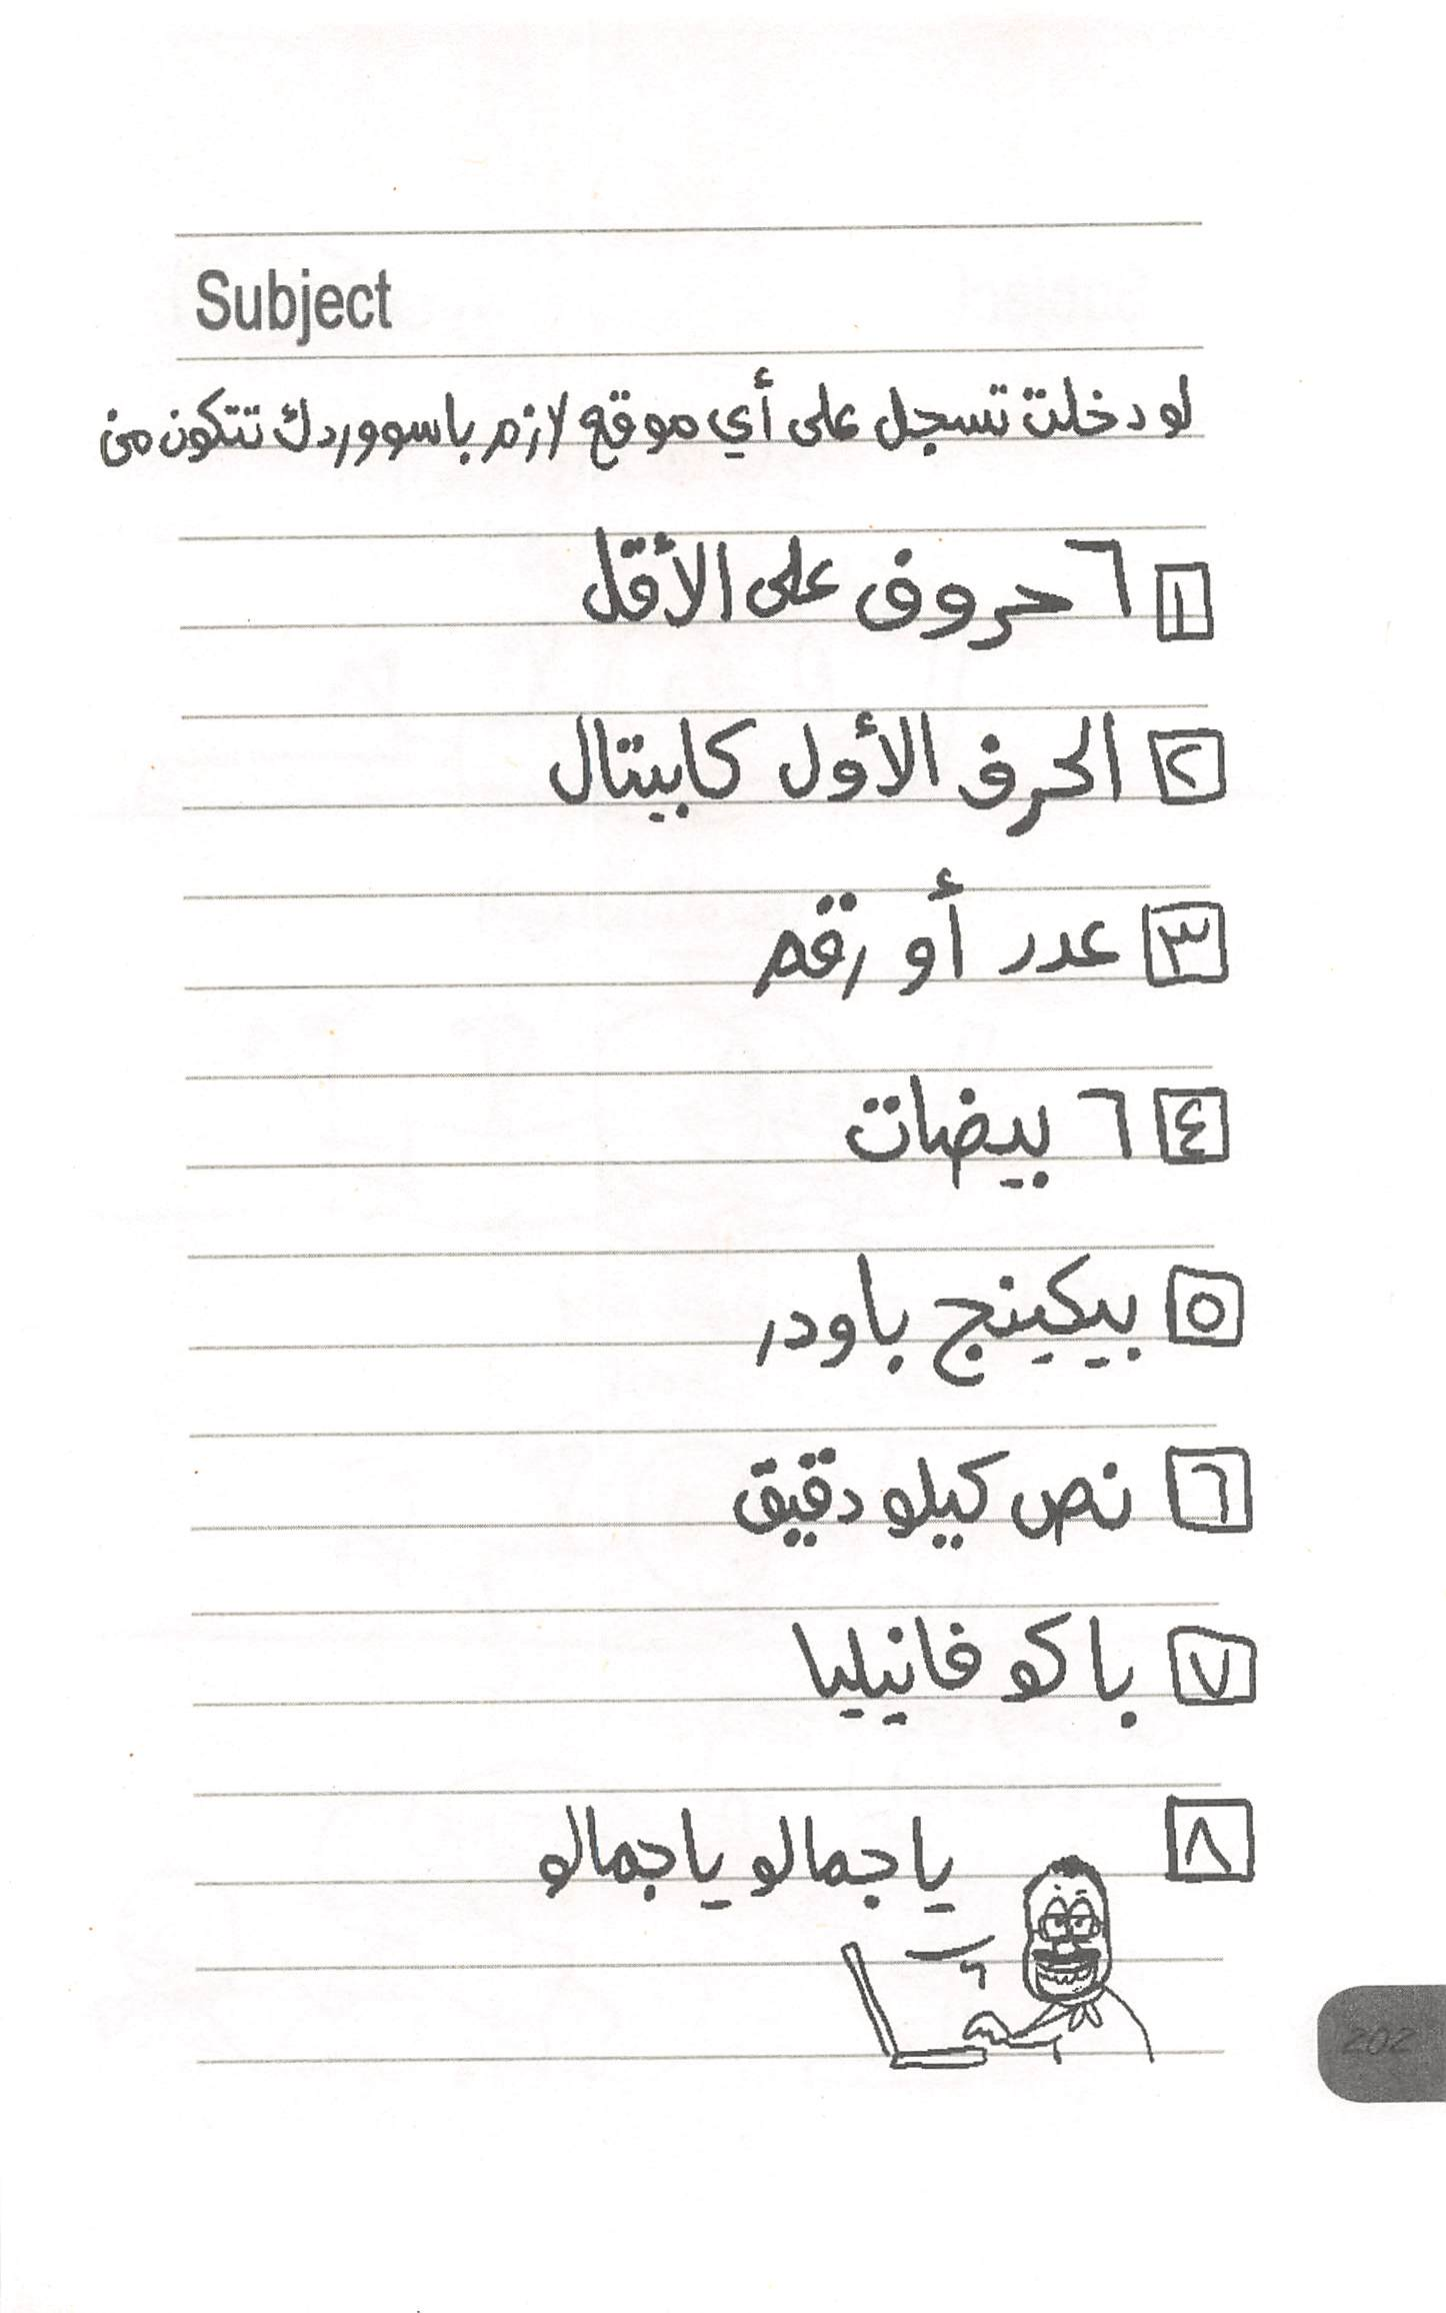 Subject
لو دخلت تسجل على أي موقع لازم باسووردك تتكون من
١ ٦ حروف على الأقل
٢ الحرف الأول كابيتال
٣ عدد أو رقم
٤ ٦ بيضات
٥ بيكينج باودر
٦ نص كيلو دقيق
٧ باكو فانيليا
٨ ياجمالو ياجمالو
202